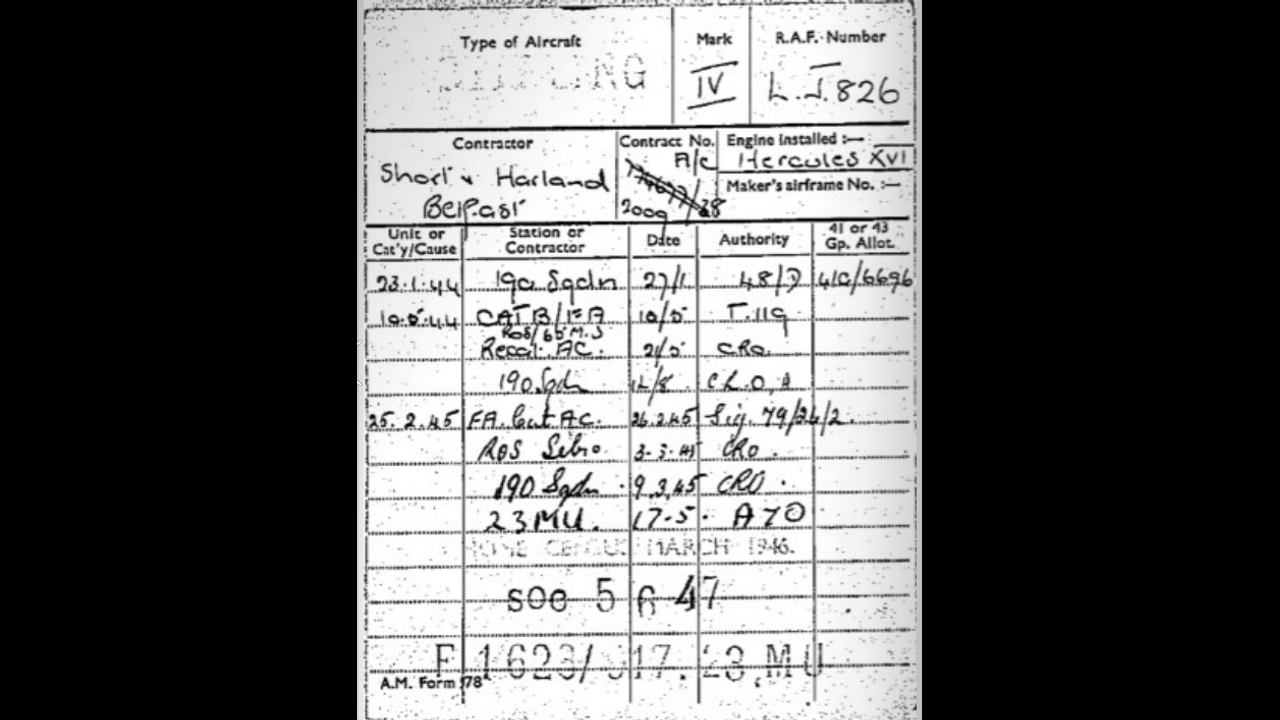 Type of Aircraft Mark R.A.F. Number
STIRLING IV L.J.826
Contractor Contract No. Engine installed :—
A/C Hercules XVI
Short & Harland Maker's airframe No. :—
Belfast 2009
Unit or Cat'y/Cause Station or Contractor Date Authority 41 or 43 Gp. Allot.
23.1.44 190 Sqdn 27/1 48/7 41G/6696
10.5.44 CAT B/FA 10/5 T.119
ROS/65 M.S
Recat. AC. 21/5 CRO.
190 Sqdn 12/8 C.R.O.
25.2.45 FA. Cat AC. 26.2.45 Sig. 79/26/2.
ROS Sebro 3.3.45 CRO.
190 Sqdn 9.3.45 CRO.
23 MU. 17.5. AZO
HOME CENSUS MARCH 1946.
SOC 5 6 47
F 1623/ 17. 23.MU
A.M. Form 78